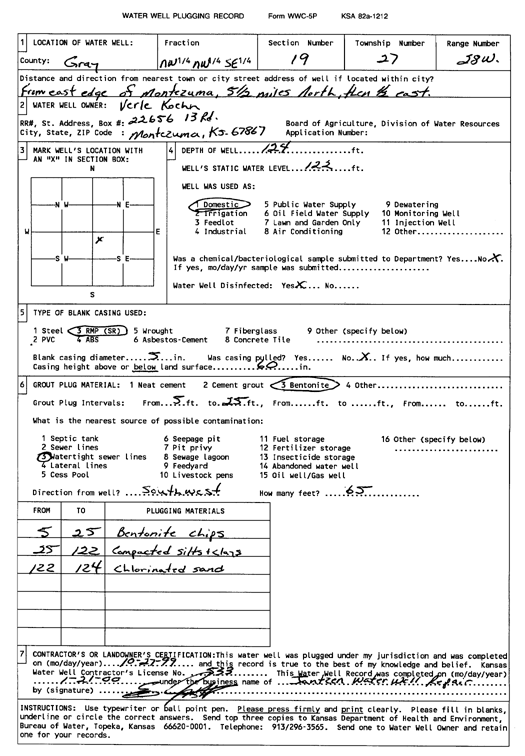 WATER WELL PLUGGING RECORD Form WWC-5P KSA 82a-1212
1 LOCATION OF WATER WELL: Fraction Section Number Township Number Range Number
County: Gray NW1/4 NW1/4 SE1/4 19 27 28W.
Distance and direction from nearest town or city street address of well if located within city?
From east edge of Montezuma, 5 1/2 miles North, then 1/2 east.
2 WATER WELL OWNER: Verle Koehn
RR#, St. Address, Box #: 22656 13 Rd. Board of Agriculture, Division of Water Resources
City, State, ZIP Code : Montezuma, KS. 67867 Application Number:
3 MARK WELL'S LOCATION WITH AN "X" IN SECTION BOX:
N
N W N E
W E
X
S W S E
S
4 DEPTH OF WELL.....124..........ft.
WELL'S STATIC WATER LEVEL...122.....ft.
WELL WAS USED AS:
1 Domestic 5 Public Water Supply 9 Dewatering
2 Irrigation 6 Oil Field Water Supply 10 Monitoring Well
3 Feedlot 7 Lawn and Garden Only 11 Injection Well
4 Industrial 8 Air Conditioning 12 Other...............
Was a chemical/bacteriological sample submitted to Department? Yes....No.X.
If yes, mo/day/yr sample was submitted....................
Water Well Disinfected: Yes X... No......
5 TYPE OF BLANK CASING USED:
1 Steel 3 RMP (SR) 5 Wrought 7 Fiberglass 9 Other (specify below)
2 PVC 4 ABS 6 Asbestos-Cement 8 Concrete Tile ..........................
Blank casing diameter.....5....in. Was casing pulled? Yes...... No..X.. If yes, how much..........
Casing height above or below land surface..........60.....in.
6 GROUT PLUG MATERIAL: 1 Neat cement 2 Cement grout 3 Bentonite 4 Other..........................
Grout Plug Intervals: From...5.ft. to..25.ft., From......ft. to .....ft., From...... to......ft.
What is the nearest source of possible contamination:
1 Septic tank 6 Seepage pit 11 Fuel storage 16 Other (specify below)
2 Sewer lines 7 Pit privy 12 Fertilizer storage ........................
3 Watertight sewer lines 8 Sewage lagoon 13 Insecticide storage
4 Lateral lines 9 Feedyard 14 Abandoned water well
5 Cess Pool 10 Livestock pens 15 Oil well/Gas well
Direction from well? ....Southwest How many feet? ...65.......
FROM TO PLUGGING MATERIALS
5 25 Bentonite chips
25 122 Compacted silts & clays
122 124 Chlorinated sand
7 CONTRACTOR'S OR LANDOWNER'S CERTIFICATION:This water well was plugged under my jurisdiction and was completed
on (mo/day/year)....10-27-99.... and this record is true to the best of my knowledge and belief. Kansas
Water Well Contractor's License No. ..533....... This Water Well Record was completed on (mo/day/year)
.....1-21-00......under the business name of ...Jantzen Water Well Repair...
by (signature)
INSTRUCTIONS: Use typewriter or ball point pen. Please press firmly and print clearly. Please fill in blanks,
underline or circle the correct answers. Send top three copies to Kansas Department of Health and Environment,
Bureau of Water, Topeka, Kansas 66620-0001. Telephone: 913/296-3565. Send one to Water Well Owner and retain
one for your records.